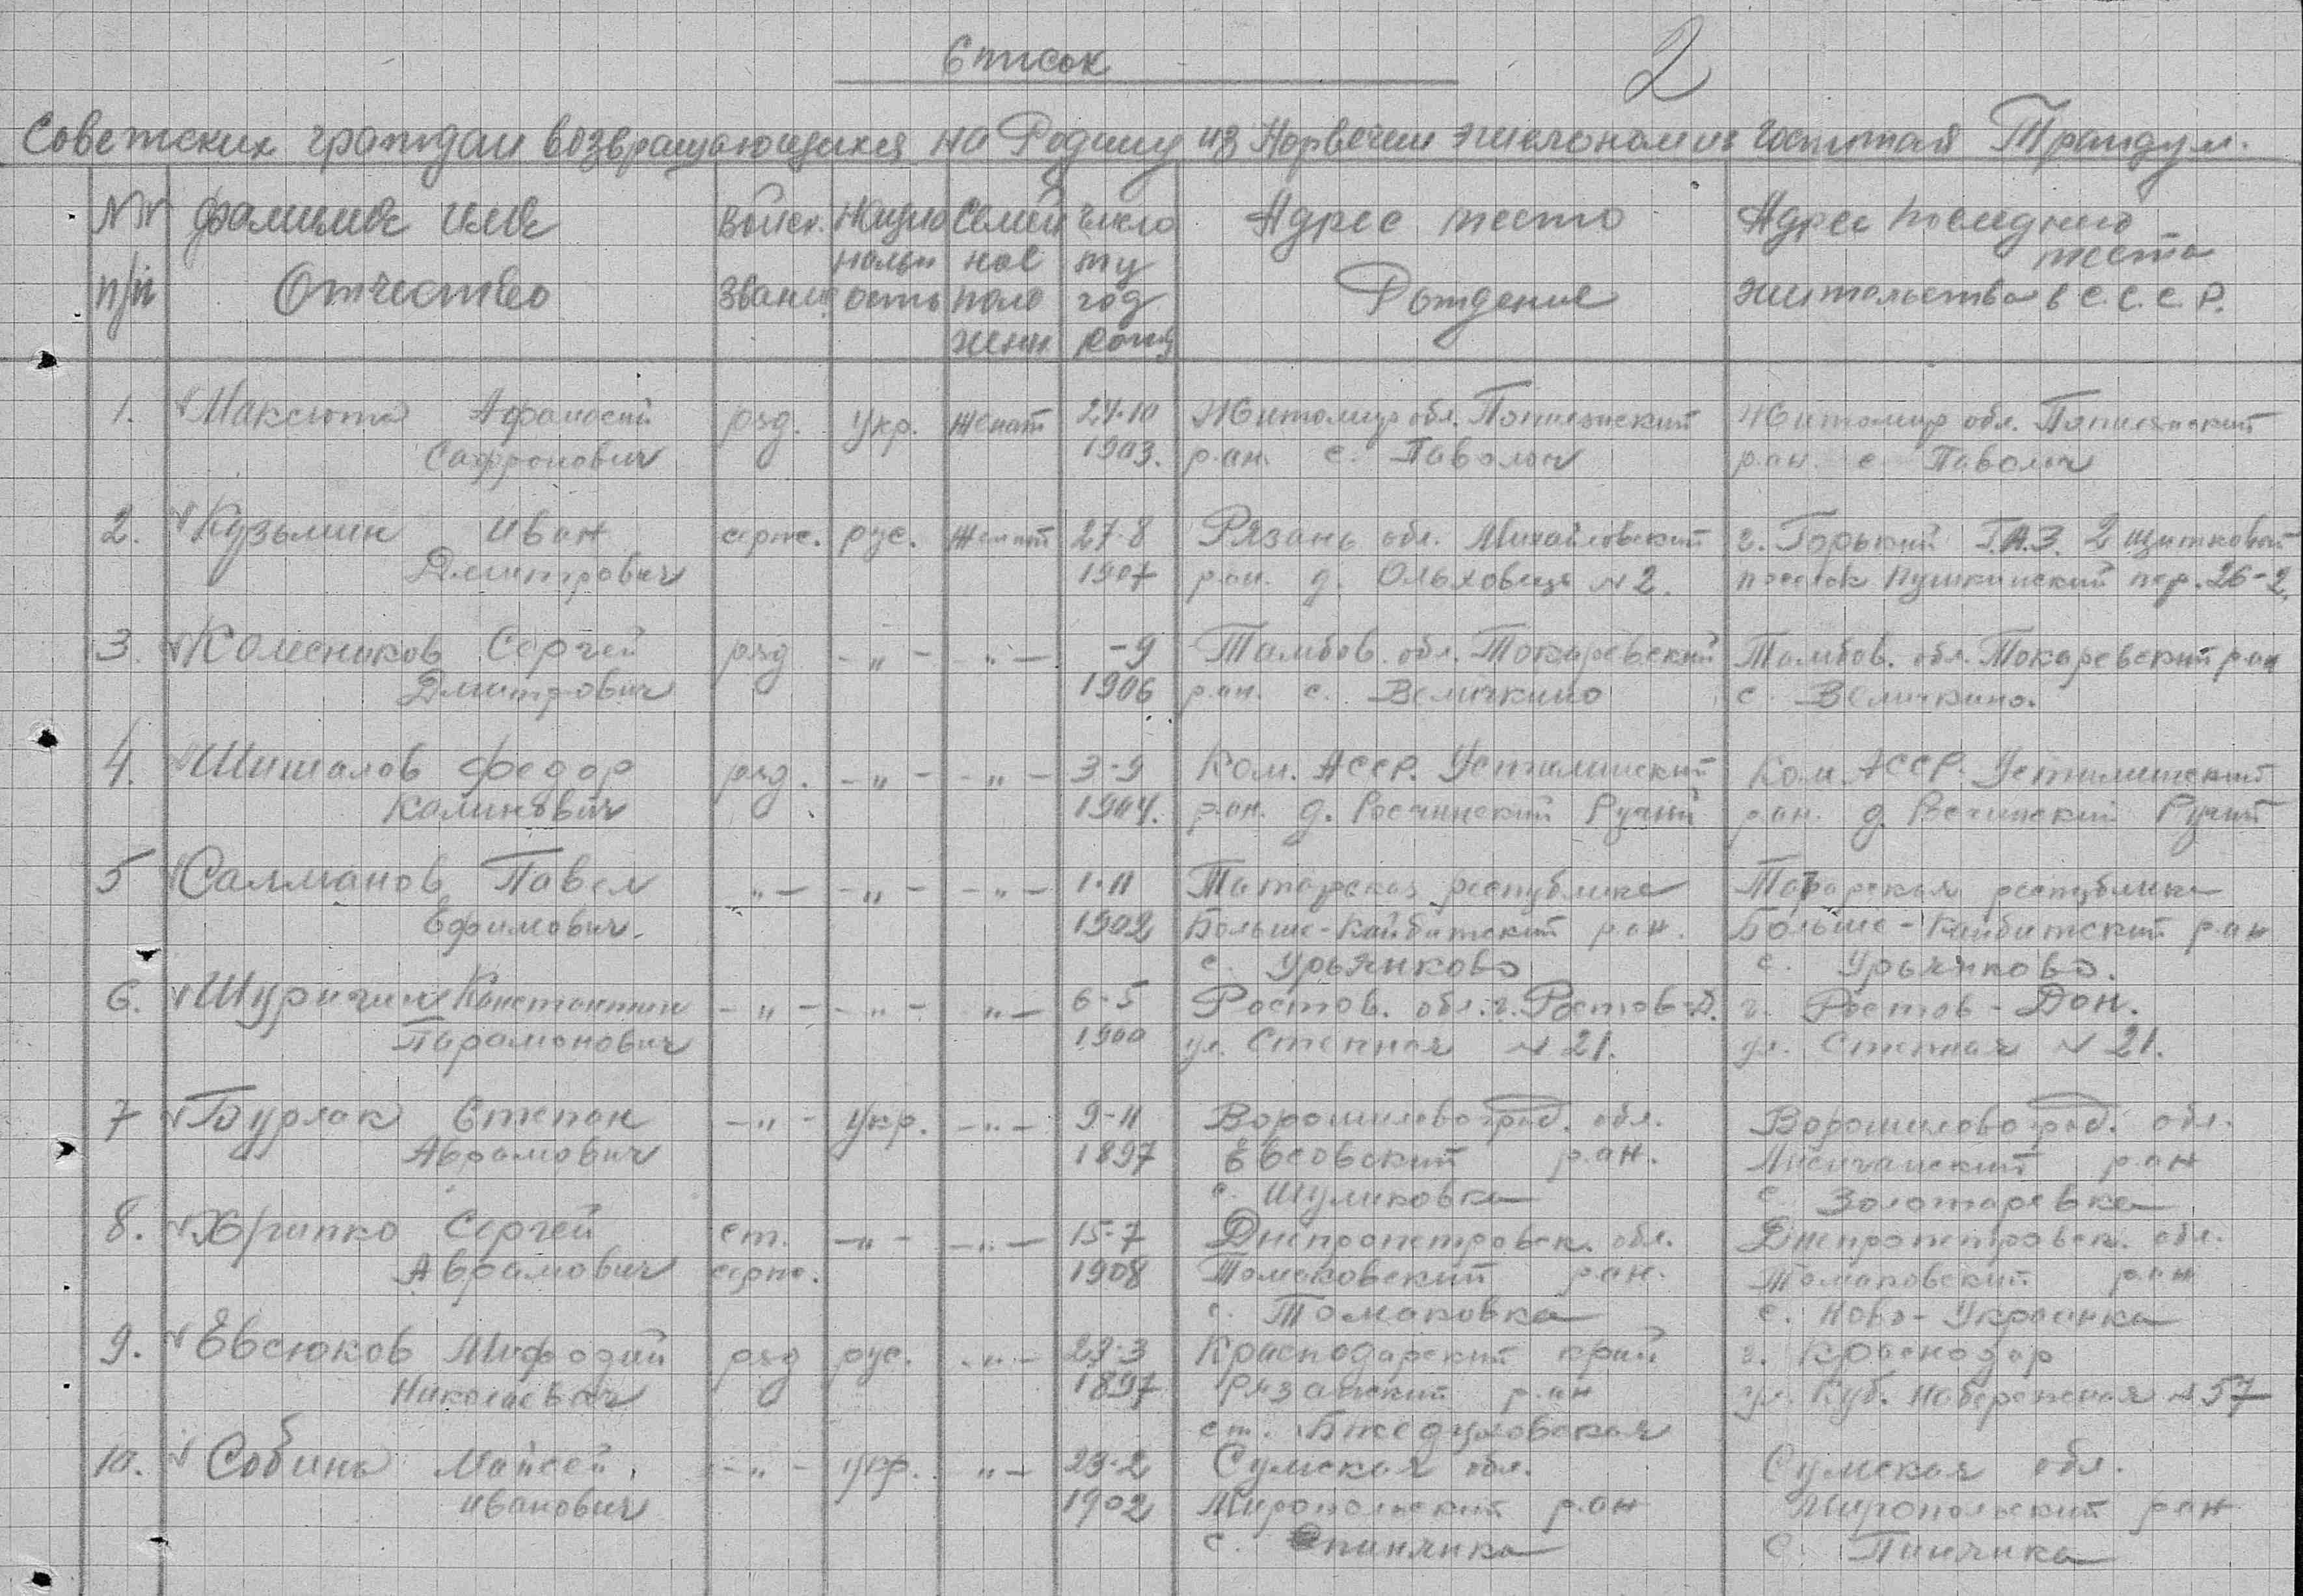 Список
2
Советских граждан возвращающихся на Родину из Норвегии эшелоном из госпиталя Трандум.
NN фамилия имя Войск. Национ Семей число Адрес место Адрес последнего
нальн ное мц места
п/п Отчество Звание ость поло год Рождение жительства в С.С.С.Р.
жени рожд
1. Максюта Афанасий ряд. Укр. Женат 24.10 Житомир обл. Попилянский Житомир обл. Попилянский
Сафронович 1903. р.он. с. Паволоч р.он. с Паволоч
2. Кузьмин Иван серж. рус. Женат 27-8 Рязань обл. Михайловский г. Горький Г.А.З. 2 щитковой
Дмитрович 1907 р.он. д. Ольховец N 2. поселок Пушкинский пер. 26-2.
3. Колесников Сергей ряд -"- -"- -9 Тамбов. обл. Токаревский Тамбов. обл. Токаревский р.он
Дмитрович 1906 р.он. с. Величкино с. Величкино.
4. Шишалов Федор ряд. -"- -"- 3-9 Ком. АССР. Устцилимский Ком. АССР. Устцилимский
Калинович 1904. р.он. д. Ручий р.он. д. Ручий
5 Салманов Павел "- -"- -"- 1-11 Татарская республика Татарская республика
Ефимович. 1902 Больше-Кайбитский р.он. Больше-Кайбитский р.он
с. Урьянково с. Урьянково.
6. Шуричин Константин -"- -"- "- 6-5 Ростов. обл. г. Ростов-Д. г. Ростов-Дон.
Парамонович 1900 ул. Степная N 21. ул. Степная N 21.
7 Бурлак Степан -"- Укр. -"- 9-11 Ворошиловоград. обл. Ворошиловоград. обл.
Аврамович 1897 Евсовский р.он. Лисичанский р.он
с. Шуликовка с. Золотаревка
8. Хрипко Сергей ст. -"- -"- 15-7 Днепропетровск. обл. Днепропетровск. обл.
Аврамович серж. 1908 Томаковский р.он. Томаковский р.он
с. Томаковка с. Ново-Украинка
9. Евсюков Мифодий ряд рус. -"- 23-3 Краснодарский край г. Краснодар
Николаевич 1897 Рязанский р.он ул. Куб. Набережная N 57
ст. Бжедуховская
10. Собина Мойсей -"- укр. "- 23-2 Сумская обл. Сумская обл.
Иванович 1902 Миропольский р.он Миропольский р.он
с. с. Пинчика